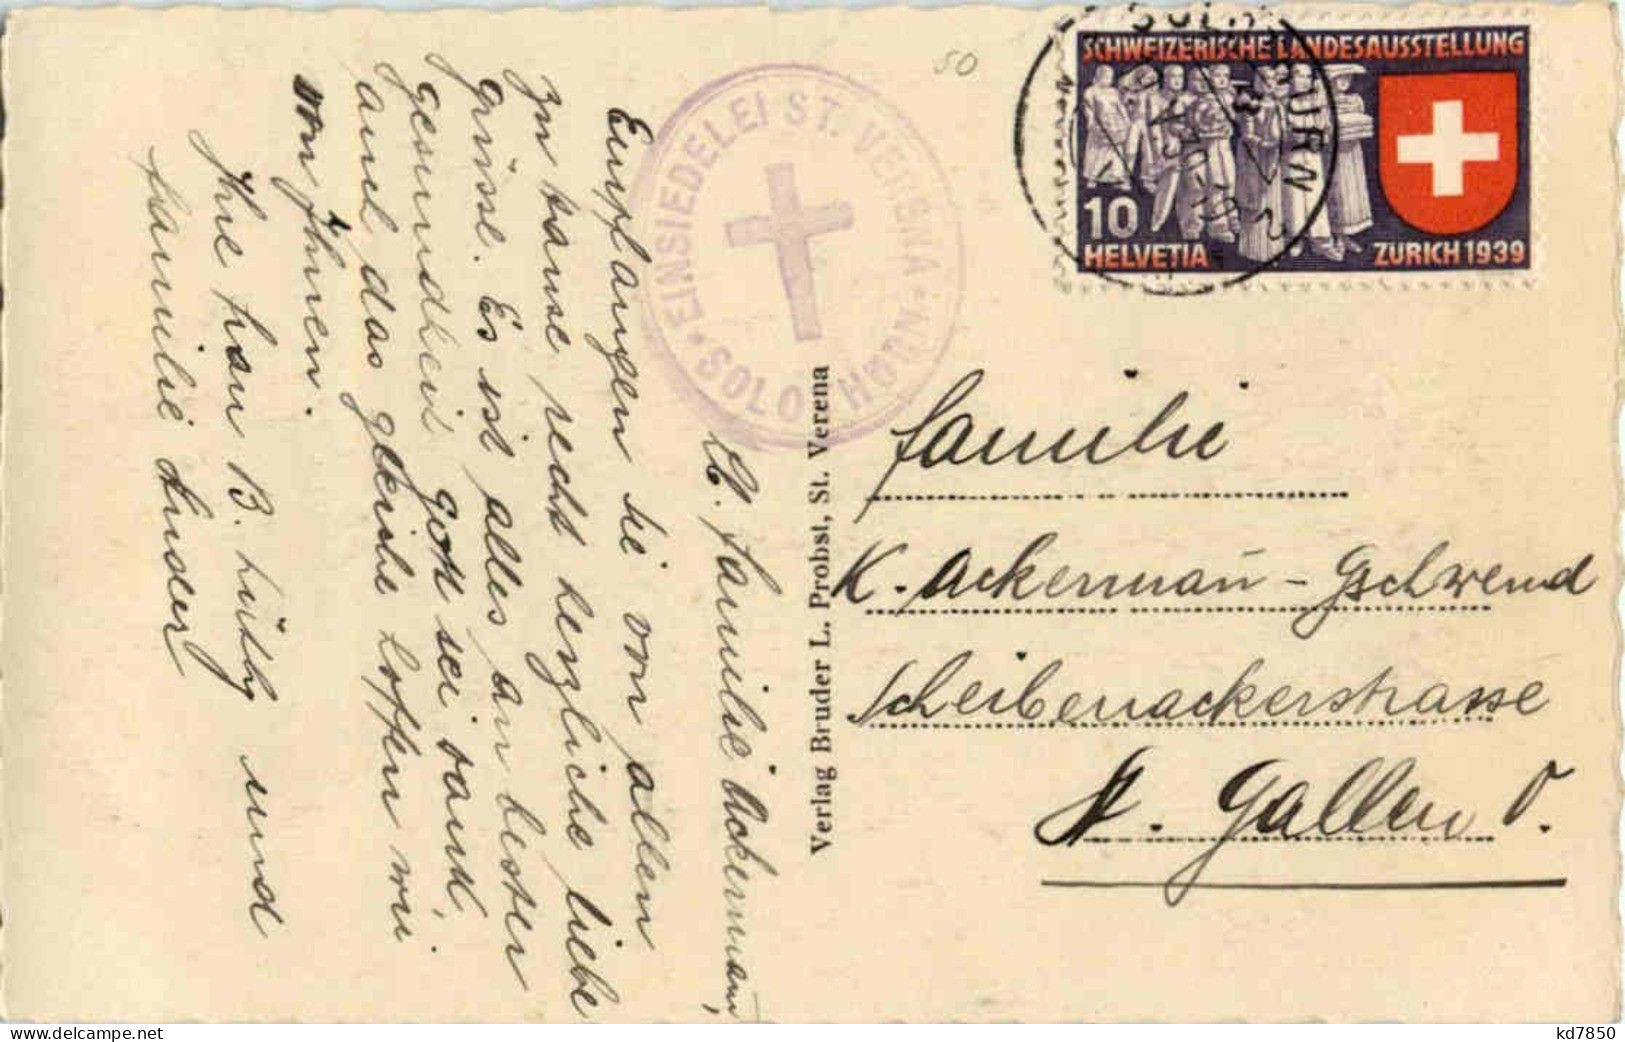 Lb. Familie Ackermann,
Empfangen sie von allen
zu hause recht herzliche liebe
grüsse. Es ist alles an bester
gesundheit gott sei dank,
auch das gleiche hoffen wir
von Ihnen.
Ihre han B. Lüthy und
familie
EINSIEDELEI ST. VERENA
SOLOTHURN
50
Verlag Bruder L. Probst, St. Verena
SCHWEIZERISCHE LANDESAUSSTELLUNG
10
HELVETIA
ZURICH 1939
familie
K. Ackermañ - Gschwend
Scheibenackerstrasse
St. Gallen O.
www.delcampe.net
kd7850